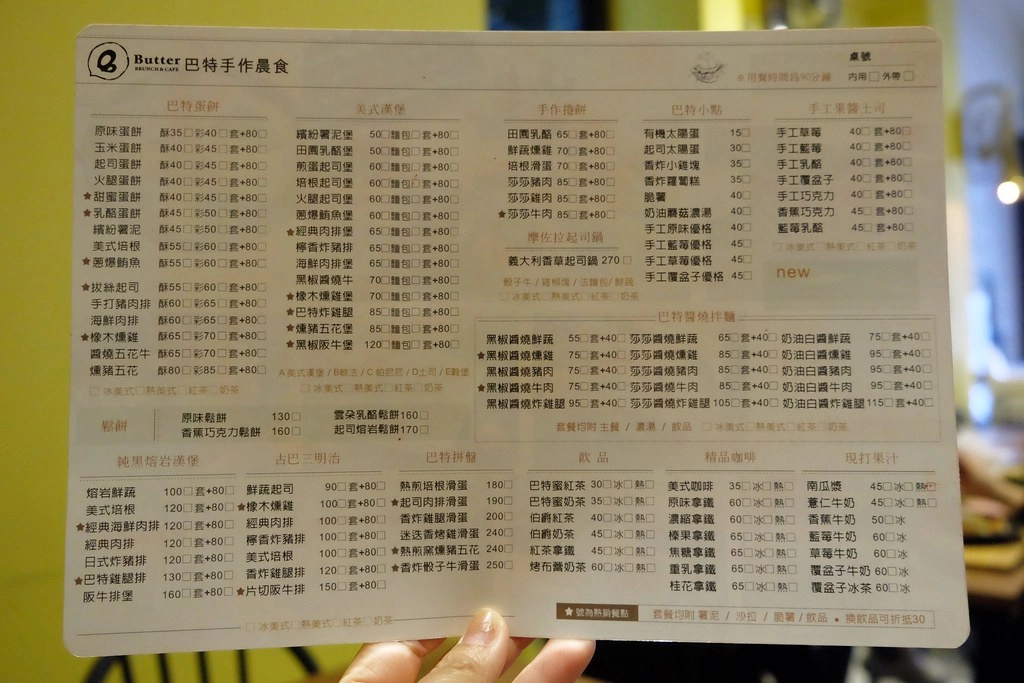 Butter 巴特手作晨食
BRUNCH & CAFE
※用餐時間為90分鐘
桌號
內用□ 外帶□
巴特蛋餅
原味蛋餅 酥35□彩40□套+80□
玉米蛋餅 酥40□彩45□套+80□
起司蛋餅 酥40□彩45□套+80□
火腿蛋餅 酥40□彩45□套+80□
★甜蜜蛋餅 酥40□彩45□套+80□
★乳酪蛋餅 酥45□彩50□套+80□
繽紛薯泥 酥45□彩50□套+80□
美式培根 酥55□彩60□套+80□
★蔥爆鮪魚 酥55□彩60□套+80□
★拔絲起司 酥55□彩60□套+80□
手打豬肉排 酥60□彩65□套+80□
海鮮肉排 酥60□彩65□套+80□
★橡木燻雞 酥65□彩70□套+80□
醬燒五花牛 酥65□彩70□套+80□
燻豬五花 酥80□彩85□套+80□
□冰美式□熱美式□紅茶□奶茶
美式漢堡
繽紛薯泥堡 50□麵包□套+80□
田園乳酪堡 50□麵包□套+80□
煎蛋起司堡 60□麵包□套+80□
培根起司堡 60□麵包□套+80□
火腿起司堡 60□麵包□套+80□
蔥爆鮪魚堡 60□麵包□套+80□
★經典肉排堡 65□麵包□套+80□
檸香炸豬排 65□麵包□套+80□
海鮮肉排堡 65□麵包□套+80□
黑椒醬燒牛 70□麵包□套+80□
★橡木燻雞堡 70□麵包□套+80□
★巴特炸雞腿 85□麵包□套+80□
★燻豬五花堡 85□麵包□套+80□
★黑椒阪牛堡 120□麵包□套+80□
A美式漢堡 / B軟法 / C帕尼尼 / D土司 / E穀堡
□冰美式□熱美式□紅茶□奶茶
手作捲餅
田園乳酪 65□套+80□
鮮蔬燻雞 70□套+80□
培根滑蛋 70□套+80□
莎莎豬肉 85□套+80□
莎莎雞肉 85□套+80□
★莎莎牛肉 85□套+80□
摩佐拉起司鍋
義大利香草起司鍋 270□
骰子牛 / 雞柳塊 / 法麵包 / 鮮蔬
□冰美式□熱美式□紅茶□奶茶
巴特小點
有機太陽蛋 15□
起司太陽蛋 30□
香炸小雞塊 35□
香炸蘿蔔糕 35□
脆薯 40□
奶油蘑菇濃湯 40□
手工原味優格 40□
手工藍莓優格 45□
手工草莓優格 45□
手工覆盆子優格 45□
手工果醬土司
手工草莓 40□套+80□
手工藍莓 40□套+80□
手工乳酪 40□套+80□
手工覆盆子 40□套+80□
手工巧克力 40□套+80□
香蕉巧克力 45□套+80□
藍莓乳酪 45□套+80□
□冰美式□熱美式□紅茶□奶茶
new
巴特醬燒拌麵
黑椒醬燒鮮蔬 55□套+40□ 莎莎醬燒鮮蔬 65□套+40□ 奶油白醬鮮蔬 75□套+40□
★黑椒醬燒燻雞 75□套+40□ 莎莎醬燒燻雞 85□套+40□ 奶油白醬燻雞 95□套+40□
黑椒醬燒豬肉 75□套+40□ 莎莎醬燒豬肉 85□套+40□ 奶油白醬豬肉 95□套+40□
★黑椒醬燒牛肉 75□套+40□ 莎莎醬燒牛肉 85□套+40□ 奶油白醬牛肉 95□套+40□
黑椒醬燒炸雞腿 95□套+40□ 莎莎醬燒炸雞腿 105□套+40□ 奶油白醬炸雞腿 115□套+40□
套餐均附 主餐 / 濃湯 / 飲品 □冰美式□熱美式□紅茶□奶茶
鬆餅
原味鬆餅 130□ 雲朵乳酪鬆餅160□
香蕉巧克力鬆餅 160□ 起司熔岩鬆餅170□
純黑熔岩漢堡
熔岩鮮蔬 100□套+80□
美式培根 120□套+80□
★經典海鮮肉排 120□套+80□
經典肉排 120□套+80□
日式炸豬排 120□套+80□
★巴特雞腿排 130□套+80□
阪牛排堡 160□套+80□
古巴三明治
鮮蔬起司 90□套+80□
★橡木燻雞 100□套+80□
經典肉排 100□套+80□
檸香炸豬排 100□套+80□
美式培根 100□套+80□
香炸雞腿排 120□套+80□
★片切阪牛排 150□套+80□
□冰美式□熱美式□紅茶□奶茶
巴特拼盤
熱煎培根滑蛋 180□
★起司肉排滑蛋 190□
香炸雞腿滑蛋 200□
迷迭香烤雞滑蛋 240□
★熱煎窯燻豬五花 240□
★香炸骰子牛滑蛋 250□
飲品
巴特蜜紅茶 30□冰□熱□
巴特蜜奶茶 35□冰□熱□
伯爵紅茶 40□冰□熱□
伯爵奶茶 45□冰□熱□
紅茶拿鐵 45□冰□熱□
烤布蕾奶茶 60□冰□熱□
精品咖啡
美式咖啡 35□冰□熱□
原味拿鐵 60□冰□熱□
濃縮拿鐵 60□冰□熱□
榛果拿鐵 65□冰□熱□
焦糖拿鐵 65□冰□熱□
重乳拿鐵 65□冰□熱□
桂花拿鐵 65□冰□熱□
現打果汁
南瓜漿 45□冰□熱□
薏仁牛奶 45□冰□熱□
香蕉牛奶 50□冰
藍莓牛奶 60□冰
草莓牛奶 60□冰
覆盆子牛奶 60□冰
覆盆子冰茶 60□冰
★號為熱銷餐點 套餐均附 薯泥 / 沙拉 / 脆薯 / 飲品 • 換飲品可折抵30